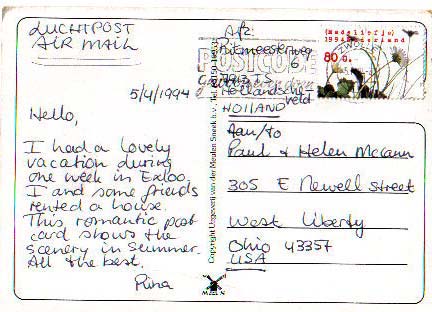 LUCHTPOST
AIR MAIL
5/4/1994
Hello,
I had a lovely
vacation during
one week in Exloo.
I and some friends
rented a house.
This romantic post
card shows the
scenery in Summer.
All the best.
Rina
Afz:
6
Hollandscheveld
HOLLAND
(Madeliefje)
1994 Nederland
80 c.
ZWOLLE
POSTCODE
Aan/to
Paul & Helen McCann
305 E Newell Street
West Liberty
Ohio 43357
USA
Copyright Uitgeverij van der Meulen Sneek b.v. Tel.